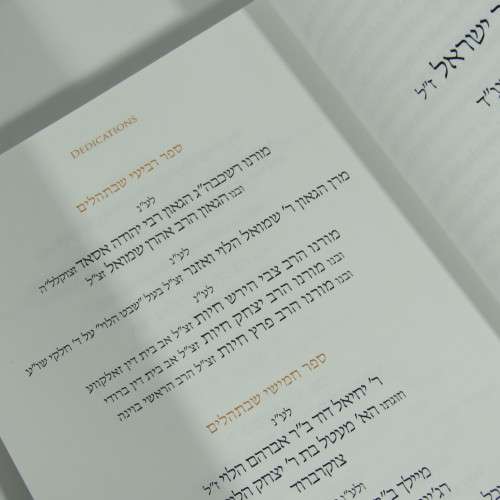 DEDICATIONS
ספר רביעי שבתהלים
לע"נ
מורנו רשכבה"ג הגאון רבי יהודה אסאד זצוקללה"ה
ובנו הגאון הרב אהרן שמואל זצ"ל
לע"נ
מרן הגאון ר' שמואל הלוי ואזנר זצ"ל בעל "שבט הלוי" על ד' חלקי שו"ע
לע"נ
מורנו הרב צבי הירש חיות זצ"ל אב בית דין זאלקווע
ובנו מורנו הרב יצחק חיות זצ"ל אב בית דין ברודי
ובנו מורנו הרב פרץ חיות זצ"ל הרב הראשי בוינה
ספר חמישי שבתהלים
לע"נ
ר' יחיאל דוד ב"ר אברהם הלוי ז"ל
וזוגתו הא' מעטל בת ר' יצחק הלוי
צוקרברוד
ולע"נ
מיילך
ר ישראל ז"ל